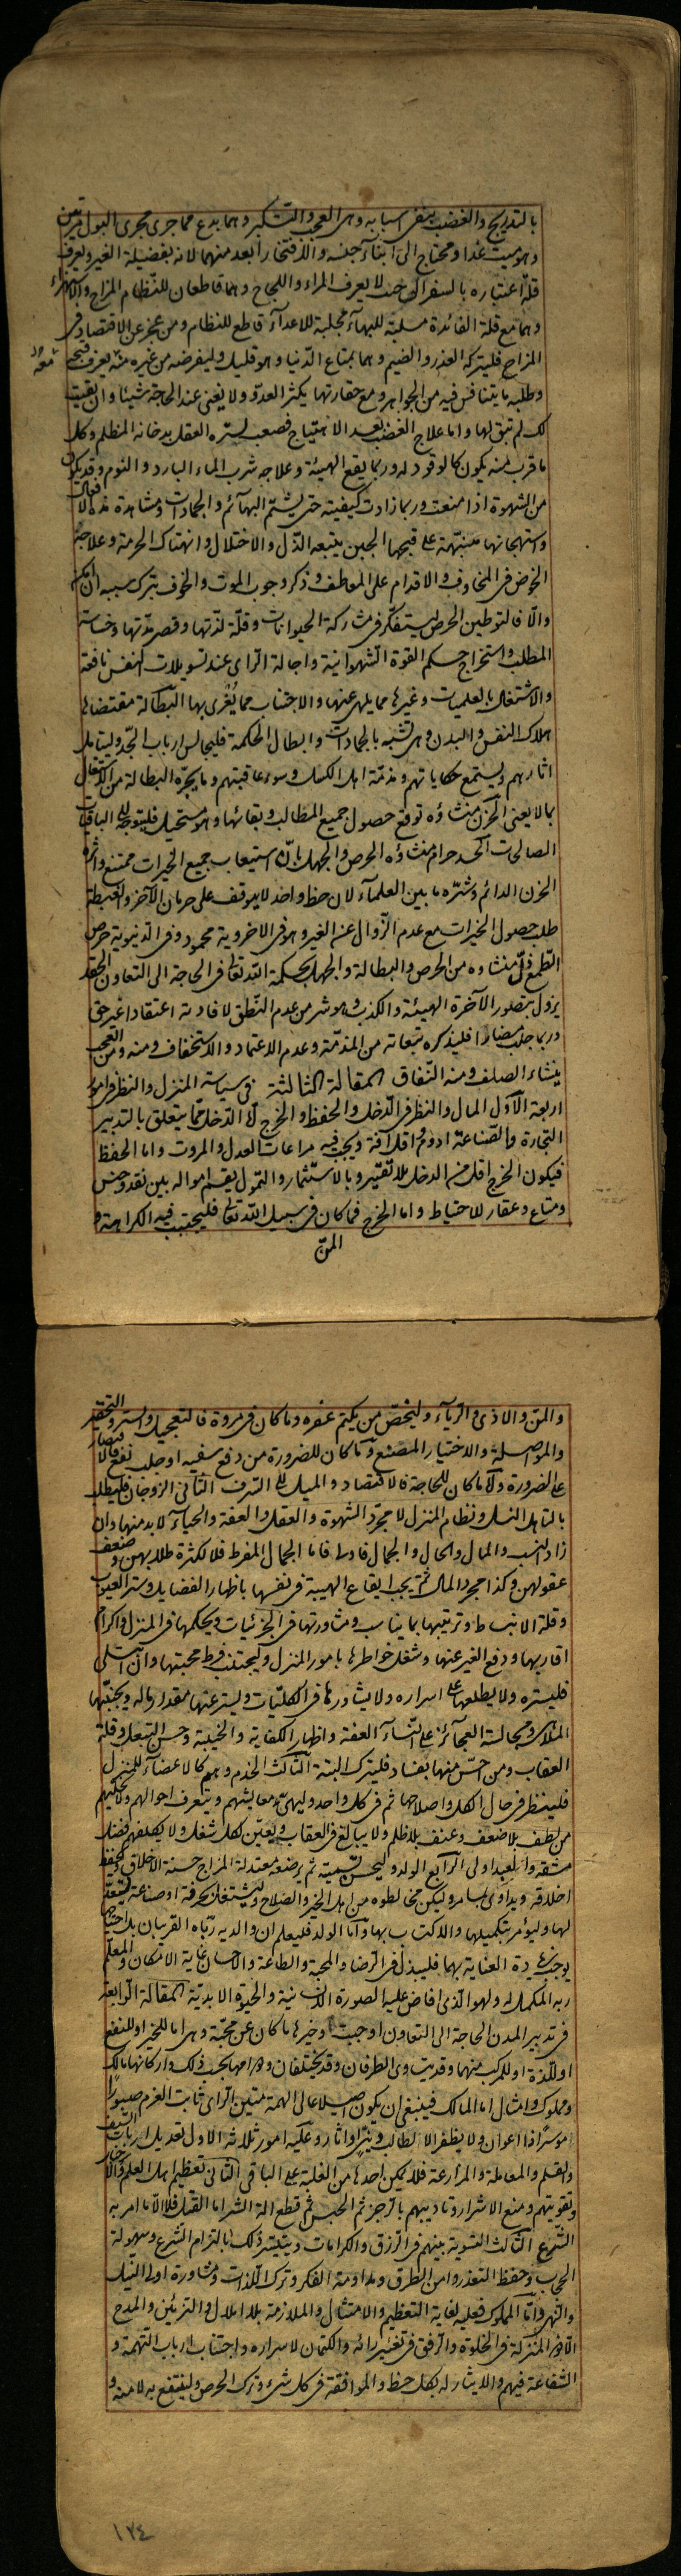 بالتدريج والغضب بنفى اسبابه وهى العجب والتكبر وهما بدع مما جرى مجرى البول مرتين
وهو ميت غدا ومحتاج الى ابناء جنسه والافتخار ابعد منهما لانه بفضيلة الغير ويعرف
قلة اعتباره بالسفر الى حيث لا يعرف المراء واللجاج وهما قاطعان للنظام المزاح والاستهزاء
وهما مع قلة الفائدة مسلبة للبهاء مجلبة للاعداء قاطع للنظام ومن عجز عن الاقتصاد فى
المزاح فليتركه الغدر والضيم وهما بمتاع الدنيا وهو قليل وليفرضه من غيره منه يعرف قبحه
وطلبه ما يتنافس فيه من الجواهر ومع حقارتها يكثر العدو ولا يغنى عند الحاجة شيئا وان بقيت
لك لم تبق لها واما علاج الغضب بعد الاهتياج فصعب لستره العقل بدخانه المظلم وكل
ما قرب منه يكون كالوقود له وربما يقع الهيئة وعلاجه شرب الماء البارد والنوم وقد يكون
من الشهوة اذا منعت وربما زادت كيفيته حتى يشتم البهائم والجمادات ومشاهدة هذه الافعال
واستهجانها منبهة على قبحها الجبن يتبعه الذل والاختلال وانهتاك الحرمة وعلاجه
الخوض فى المخاوف والاقدام على المعاطف وذكر وجوب الموت والخوف بترك سببه ان امكن
والا فالتوطين الحرص ليتفكر فى مشاركة الحيوانات وقلة لذتها وقصر مدتها وخساسة
المطلب واستخراج حكم القوة الشهوانية واجالة الراى عند تسويلات النفس نافعة
والاشتغال بالعلميات وغيرها مما يلهى عنها والاجتناب مما يغرى بها البطالة مقتضاها
اهلاك النفس والبدن وهى تشبه بالجمادات وابطال الحكمة فليجالس ارباب الجد وليتامل
اثارهم ويستمع حكاياتهم ومذمة اهل الكسل وسوء عاقبتهم وما يجره البطالة من الاشتغال
بما لا يعنى الحزن منشاؤه توقع حصول جميع المطالب وبقائها وهو مستحيل فليتوجه الى الباقيات
الصالحات الحسد حرام منشاؤه الحرص والجهل بان استيعاب جميع الخيرات ممتنع واثره
الحزن الدائم وشره ما بين العلماء لان حظ واحد لا يتوقف على حرمان الآخر والغبطة
طلب حصول الخيرات مع عدم الزوال عن الغير وهو فى الاخروية محمود وفى الدنيوية حرص
الطمع ذل منشاؤه من الحرص والبطالة والجهل بحكمة الله تعالى فى الحاجة الى التعاون الحقد
يزول بتصور الآخرة الهيئة والكذب وهو شر من عدم النطق لافادته اعتقادا غير حق
وربما جلب مضارا فليذكره تبعاته من المذمة وعدم الاعتماد والاستخفاف ومنه ومن العجب
ينشاء الصلف ومنه النفاق المقالة الثالثة فى سياسة المنزل والنظر فى امور
اربعة الاول المال والنظر فى الدخل والحفظ والخرج اما الدخل مما يتعلق بالتدبير
التجارة والصناعة ادوم واقل آفة ويجب فيه مراعات العدل والمروت واما الحفظ
فيكون الخرج اقل من الدخل بلا تقتير وبالاستثمار والتمول يقسم امواله بين نقد وجنس
ومتاع وعقار للاحتياط واما الخرج فما كان فى سبيل الله تعالى فليجتنب فيه الكراهة و
المنّ
والمن والاذى والرياء وليخص من يكتم عفره وما كان فى مروة فالتعجيل والستر والتحقير
والمواصلة والاختيار المصنع وما كان للضرورة من دفع سفيه او جلب نفع فالاقتصار
على الضرورة واما ما كان للحاجة فالاقتصاد والميل الى السرف الثانى الزوجان فليطلب
بالتاهل النسل ونظام المنزل لا مجرد الشهوة والعقل والعفة والحياء لا بد منها وان
زاد النسب والمال والحال والجمال فاوسط فاما الجمال المفرط فلا لكثرة طلابهن وضعف
عقولهن وكذا مجرد المال ثم يجب ايقاع الهيبة فى نفسها باظهار الفضايل وستر العيوب
وقلة الانبساط وترتيبها بما يناسب ومشاورتها فى الجزئيات ويحكمها فى المنزل واكرام
اقاربها ودفع الغير عنها وشغل خواطرها بامور المنزل وليجتنب فرط محبتها وان ابتلى
فليستره ولا يطلعها على اسراره ولا يشاورها فى الكليات ويستر عنها مقدار ماله ويجنبها
الملاهى ومجالسة العجائز على النساء العفة واظهار الكفاية والخيبة وحسن التبعل وقلة
العقاب ومن احس منها بفساد فليترك البتة الثالث الخدم وهم كالاعضاء للمنزل
فلينظر فى حال الكل واصلاحها ثم فى كل واحد وليهئ معايشهم ويتعرف احوالهم ولا يحكيهم
من لطف بلا ضعف وعنف بلا ظلم ولا يبالغ فى العقاب ويعين لكل شغل ولا يكلفهم فضل
مشقة والعبيد اولى الرابع الولد وليحسن تسميته ثم يرضعه معتدلة المزاج حسنة الاخلاق ويحفظ
اخلاقه ويداوى اسامر وليكن مخالطوه من اهل الخير والصلاح وليشتغل بحرفة او صناعة يستعد
لها وليؤمر بتكميلها والاكتساب بها واما الولد فليعلم ان والديه ربّاه القريبان بل احتياجا
يوجب زيادة العناية بهما فليبذل فى الرضا والمحبة والطاعة والاحسان غاية الامكان والمعلم
ربه المكمل له ولهو الذى افاض عليه الصورة الانسانية والحيوة الابدية المقالة الرابعة
فى تدبير المدن الحاجة الى التعاون اوجبت وخيرها ما كان عن محبة وهى اما للخير او للنفع
او للذة او للمركب منهما وقد يتساوى الطرفان وقد يختلفان ودوامها بحسب ذلك واركانها مالك
ومملوك وامثال اما المالك فينبغى ان يكون اصيلا عالى الهمة متين الراى ثابت العزم صبورا
موسرا ذا اعوان ولا يظفر الا لطالب دين او ثار وعليه امور ثلاثة الاول تعديل ارباب السيف
والقلم والمعاملة والمزارعة فلا يمكن احدها من الغلبة على الباقى الثانى تعظيم اهل العلم والاخيار
وتقويتهم ومنع الاشرار وتاديبهم بالزجر ثم الحبس ثم قطع الة الشر اما القتل فلا الا ما امر به
الشرع الثالث التسوية بينهم فى الرزق والكرامات ويتيسر ذلك بالتزام الشرع وسهولة
الحجاب وحفظ الثغور وامن الطرق ومداومة الفكر وترك اللذات ومشاورة اولى النبل
والنهى واما المملوك فعليه لغاية التعظيم والامتثال والملازمة بلا املال والتزيين والمدح
الا فى المنزلة فى الخلوة والرفق فى تغيير رائه والكتمان لاسراره واجتناب ارباب التهمة و
الشفاعة فيهم والايثار له بكل حظ والموافقة فى كل شىء وترك الحرص ولينتفع به لا منه و
١٢٤